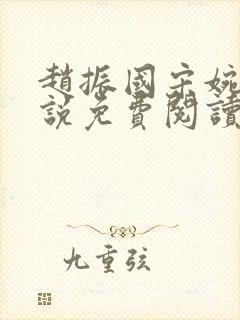 趙振國宋婉
說免費閱讀
九重弦